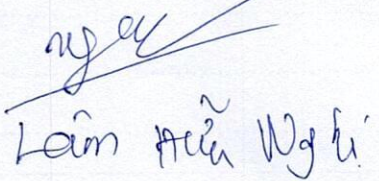 Lâm Hữu Nghị